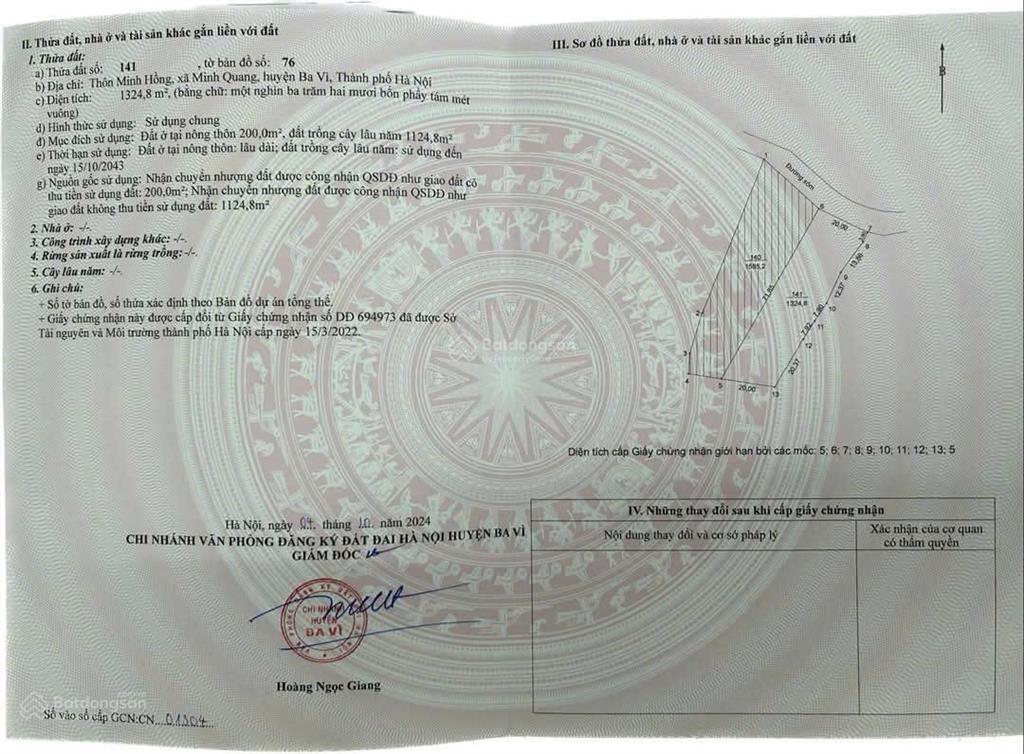 II. Thửa đất, nhà ở và tài sản khác gắn liền với đất
1. Thửa đất:
a) Thửa đất số: 141 , tờ bản đồ số: 76
b) Địa chỉ: Thôn Minh Hồng, xã Minh Quang, huyện Ba Vì, Thành phố Hà Nội
c) Diện tích: 1324,8 m², (bằng chữ: một nghìn ba trăm hai mươi bốn phẩy tám mét
vuông)
d) Hình thức sử dụng: Sử dụng chung
đ) Mục đích sử dụng: Đất ở tại nông thôn 200,0m², đất trồng cây lâu năm 1124,8m²
e) Thời hạn sử dụng: Đất ở tại nông thôn: lâu dài; đất trồng cây lâu năm: sử dụng đến
ngày 15/10/2043
g) Nguồn gốc sử dụng: Nhận chuyển nhượng đất được công nhận QSDĐ như giao đất có
thu tiền sử dụng đất: 200,0m²; Nhận chuyển nhượng đất được công nhận QSDĐ như
giao đất không thu tiền sử dụng đất: 1124,8m²
2. Nhà ở: -/-
3. Công trình xây dựng khác: -/-
4. Rừng sản xuất là rừng trồng: -/-
5. Cây lâu năm: -/-
6. Ghi chú:
+ Số tờ bản đồ, số thửa xác định theo Bản đồ dự án tổng thể.
+ Giấy chứng nhận này được cấp đổi từ Giấy chứng nhận số DĐ 694973 đã được Sở
Tài nguyên và Môi trường thành phố Hà Nội cấp ngày 15/3/2022.
Hà Nội, ngày 07 tháng 10 năm 2024
CHI NHÁNH VĂN PHÒNG ĐĂNG KÝ ĐẤT ĐAI HÀ NỘI HUYỆN BA VÌ
GIÁM ĐỐC
CHI NHÁNH
HUYỆN
BA VÌ
Hoàng Ngọc Giang
Số vào sổ cấp GCN:CN 01304
Batdongsan
III. Sơ đồ thửa đất, nhà ở và tài sản khác gắn liền với đất
B
1
Đường xóm
6
20,00
7
8
13,56
9
12,37
10
140
1585,2
71,85
141
1324,8
7,80
11
7,92
12
20,37
2
3
4
5
20,00
13
Batdongsan
by PropertyGuru
Diện tích cấp Giấy chứng nhận giới hạn bởi các mốc: 5; 6; 7; 8; 9; 10; 11; 12; 13; 5
IV. Những thay đổi sau khi cấp giấy chứng nhận
Nội dung thay đổi và cơ sở pháp lý
Xác nhận của cơ quan
có thẩm quyền